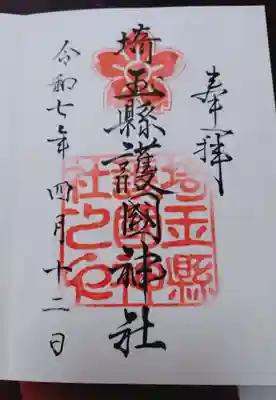 奉拝
埼玉縣護國神社
令和七年四月十二日
埼玉縣護國神社之印